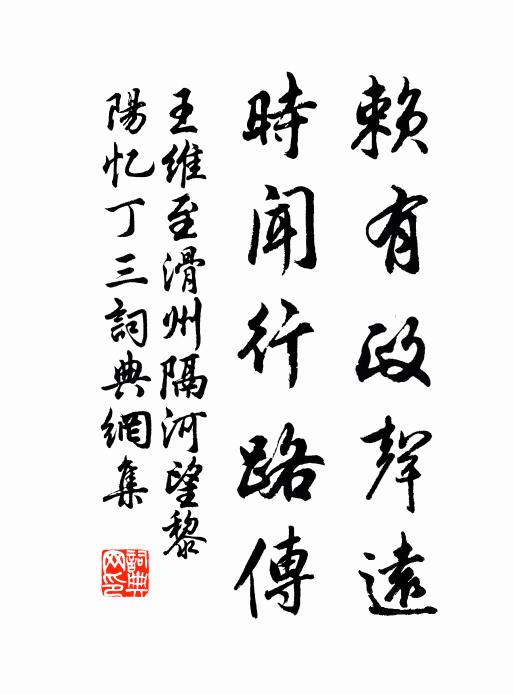 賴有政聲遠
時聞行路傳
王維至滑州隔河望黎
陽忆丁三詞典網集
詞典
网印